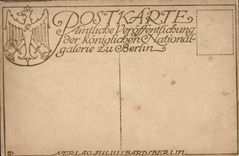 POSTKARTE
Amtliche Veröffentlichung
der königlichen National-
galerie zu Berlin
VERLAG JULIUS BARD/BERLIN